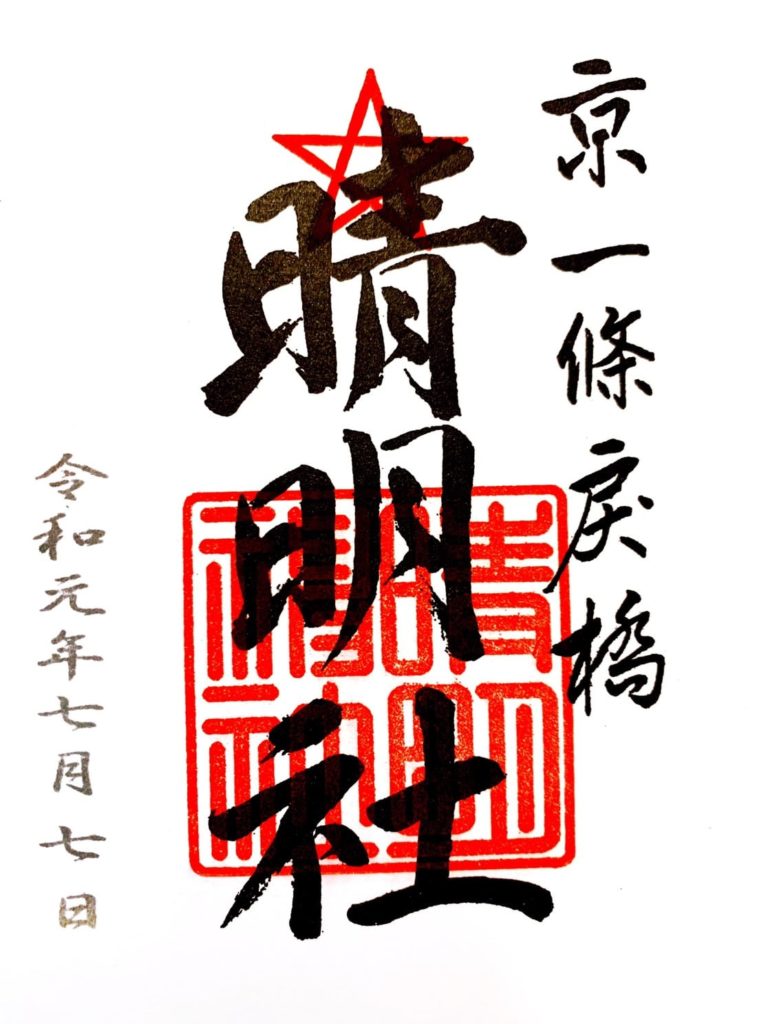 京一條戻橋
晴明社
晴明
神社
令和元年七月七日